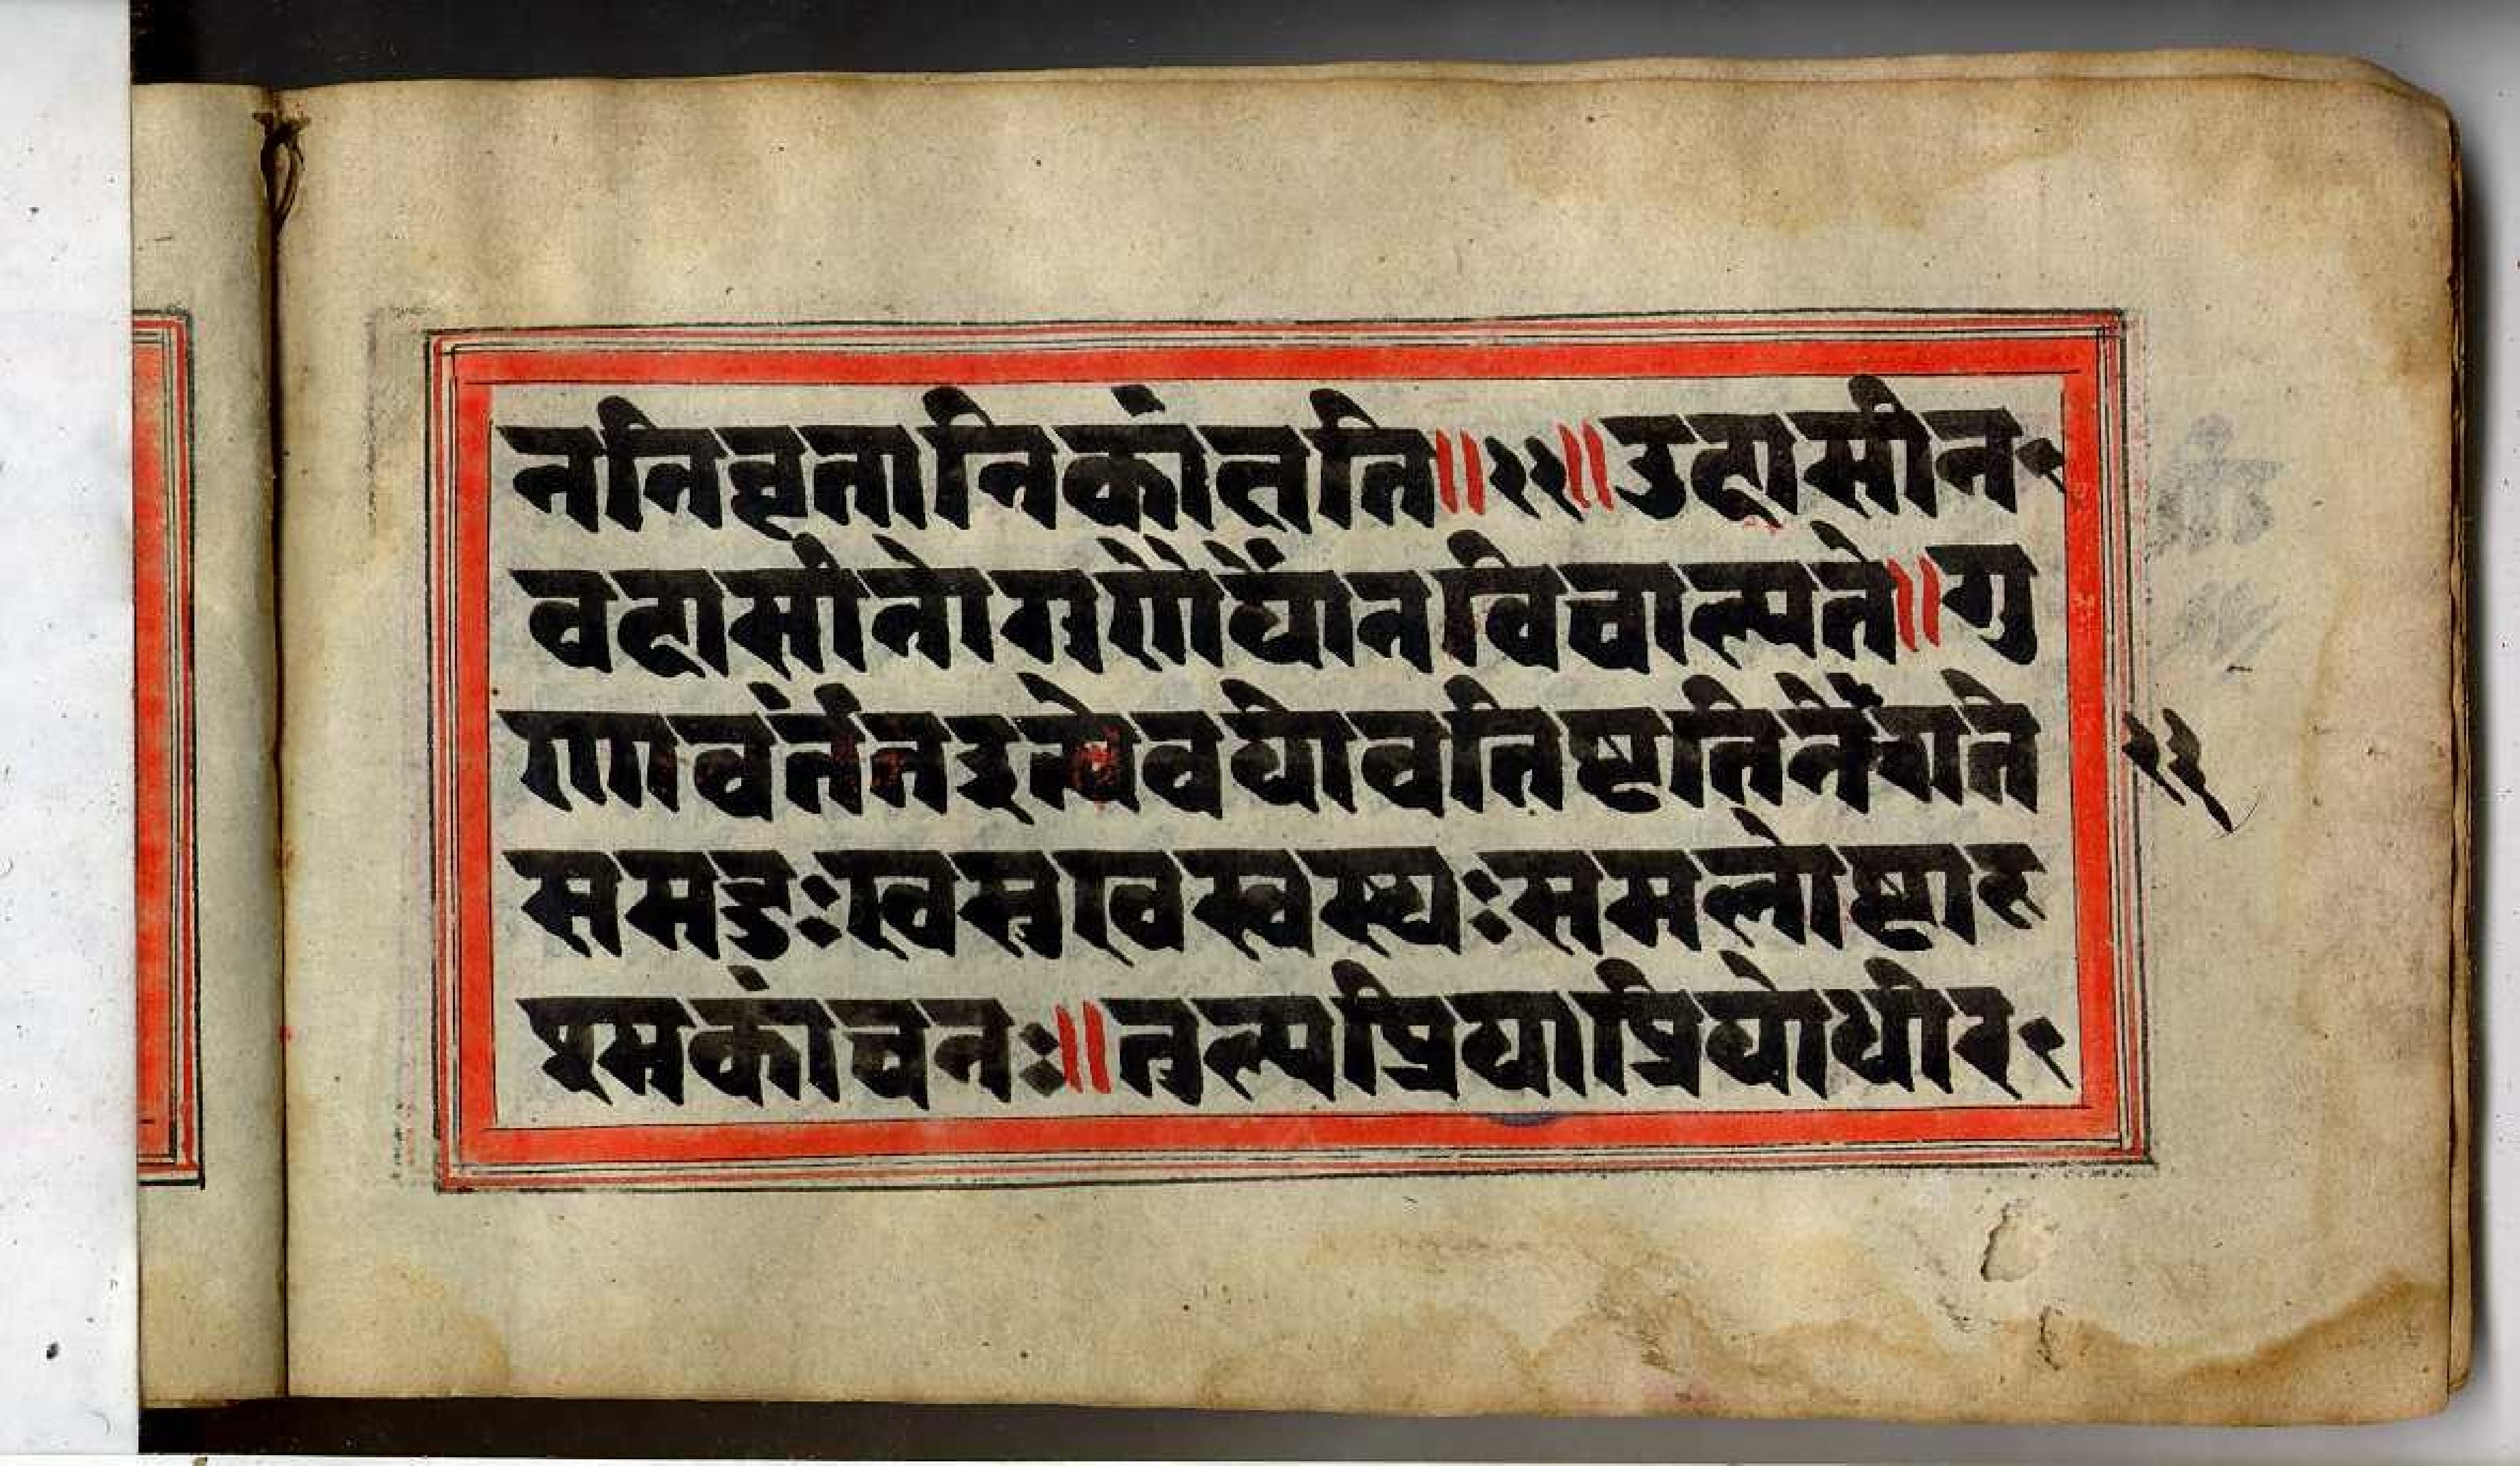 ननिवृत्तानिकांक्षति॥२२॥उदासीन
वदासीनोगुणैर्योनविचाल्यते॥गु
णावर्तंतइत्येवयोवतिष्टतिनेंगते
समदुःखसुखस्वस्थः समलोष्टा
श्मकांचनः॥तुल्यप्रियाप्रियोधीर
२३